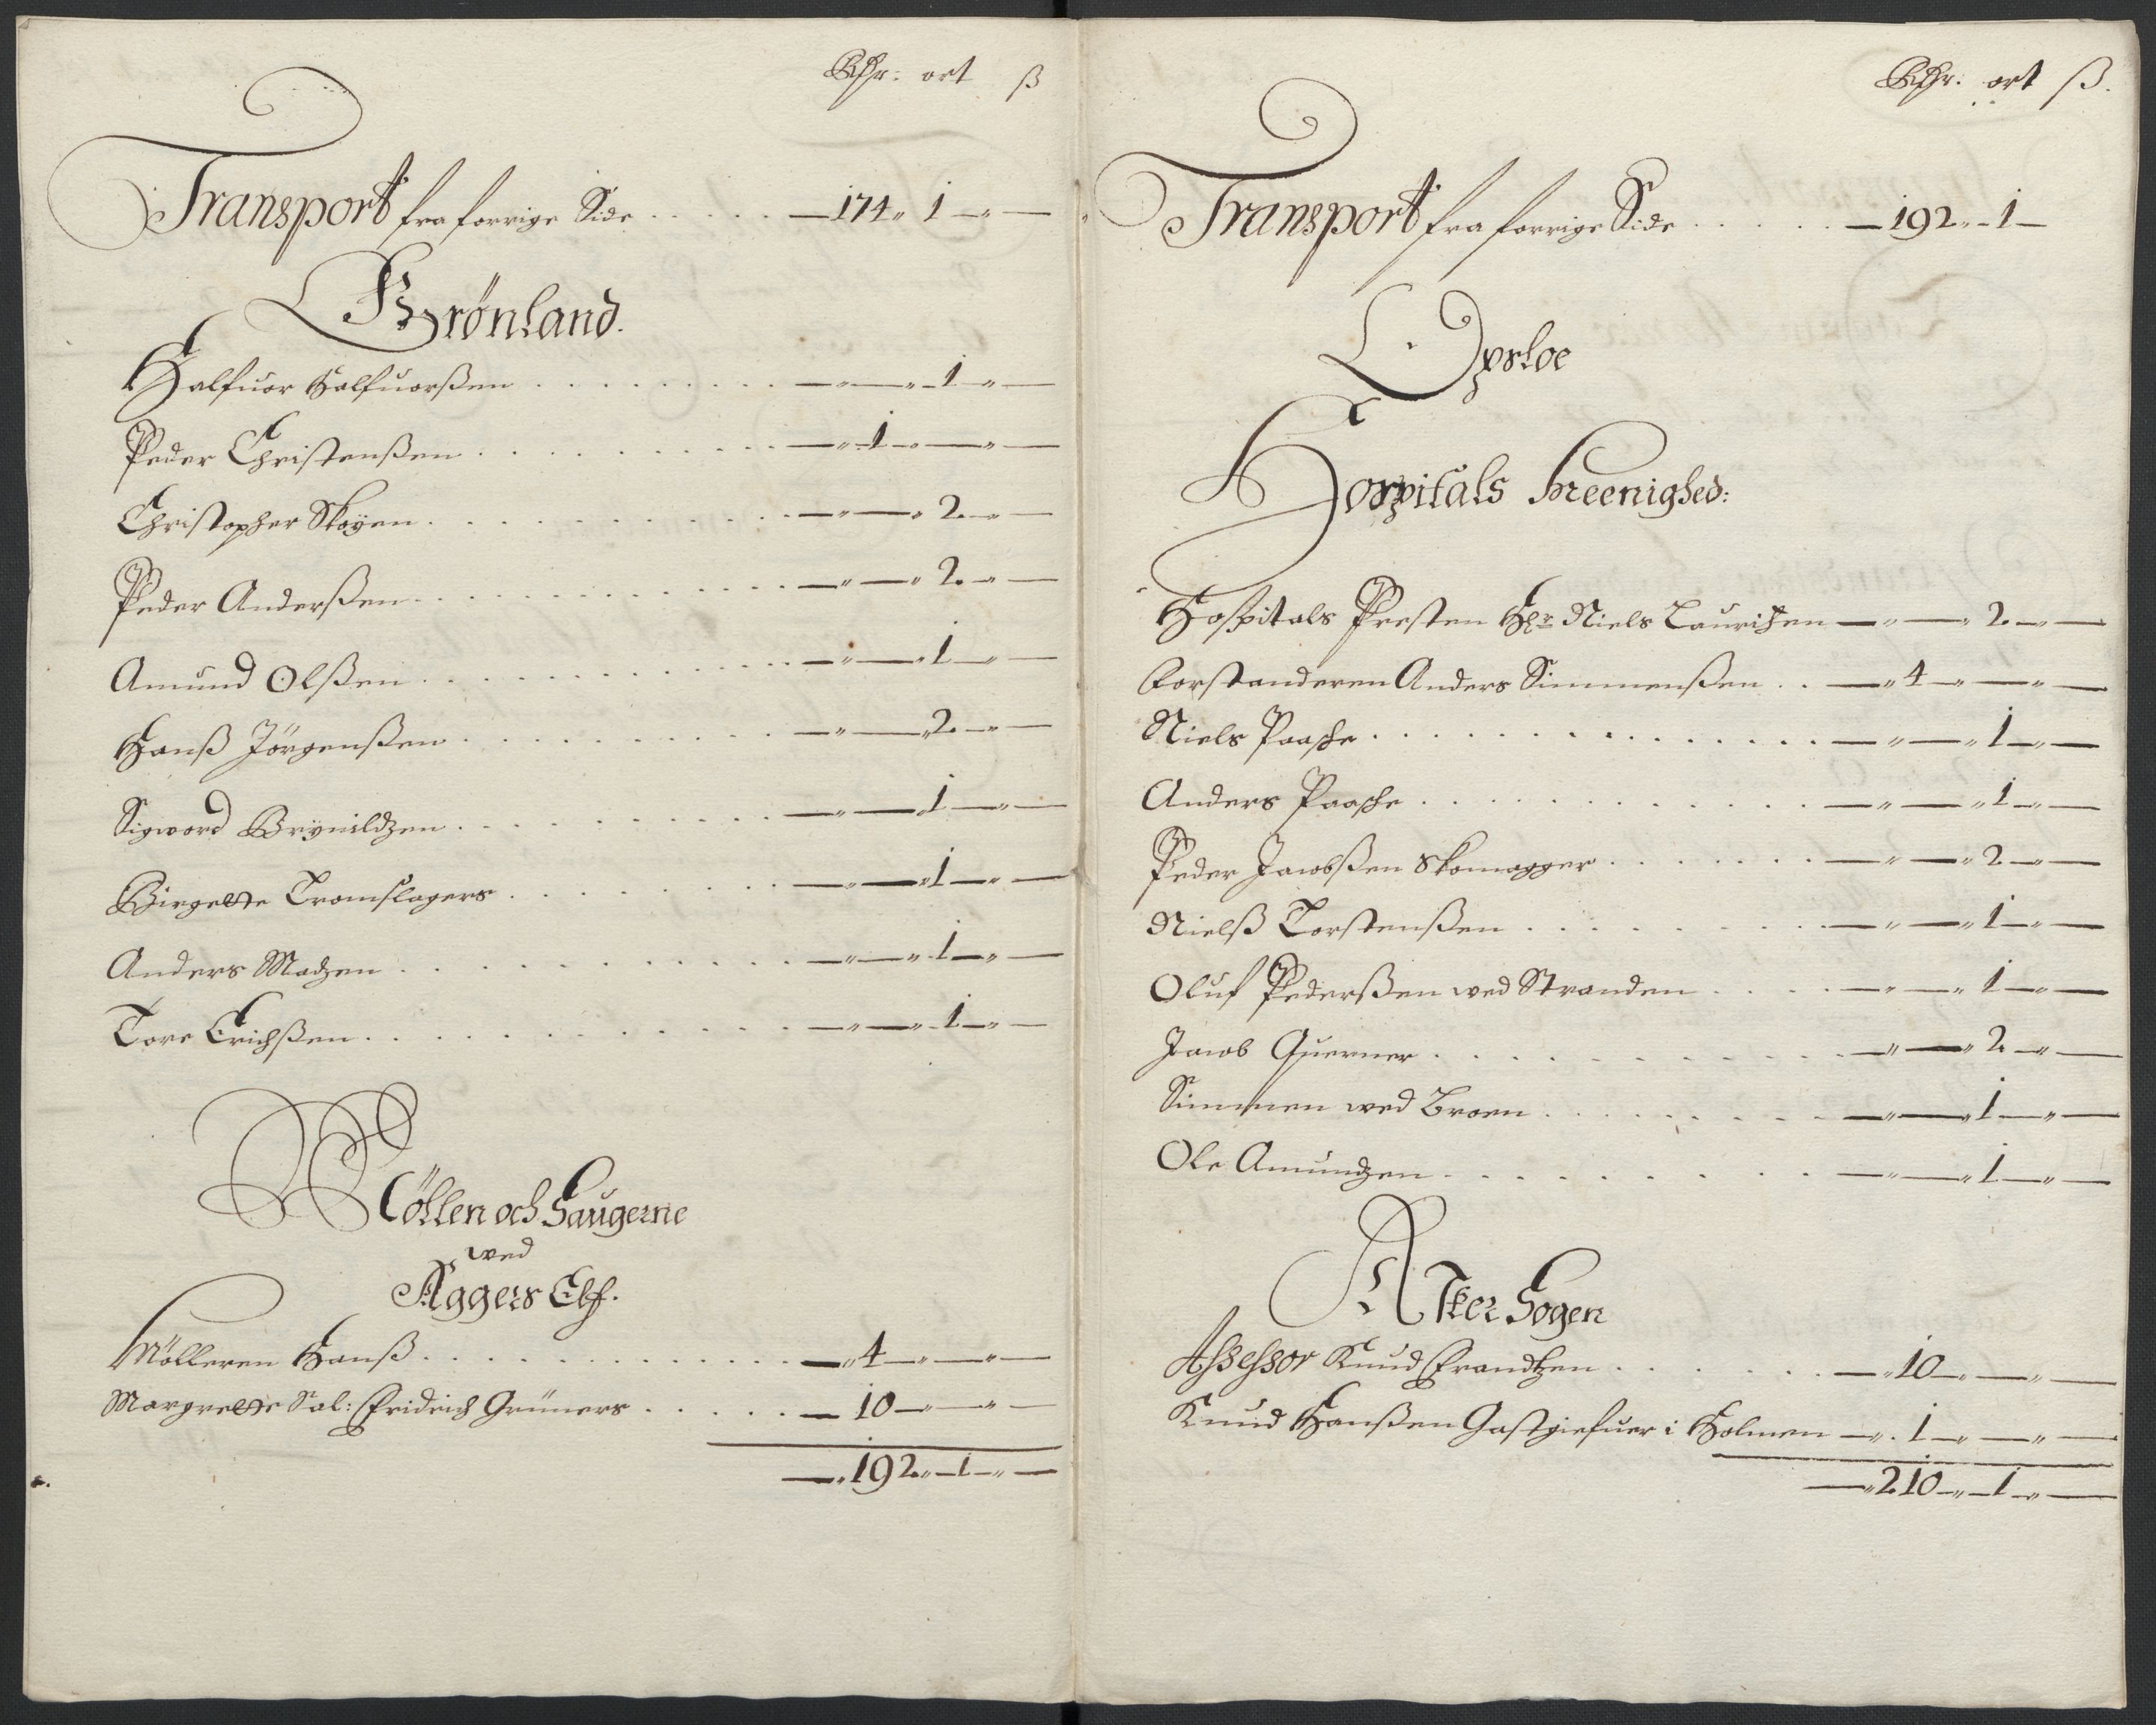 Rdr: ort ß
Transport fra forrige Side . . . . . — 174 „ 1 — „ —
Grönland.
Halfuor Halfuorßen . . . . . . . . — „ — „ 1 „ —
Peder Christenßen . . . . . . . . — „ 1 — „ — „ —
Christopher Skøyen . . . . . . . . — „ — „ 2 — „ —
Peder Anderßen . . . . . . . . — „ — „ 2 — „ —
Amund Olßen . . . . . . . . — „ — „ 1 — „ —
Hanß Jörgenßen . . . . . . . . — „ — „ 2 — „ —
Sigword Brynildzen . . . . . . . . — „ — „ 1 — „ —
Birgette Tromslagers . . . . . . . . — „ — „ 1 — „ —
Anders Madzen . . . . . . . . — „ — „ 1 — „ —
Tore Erichßen . . . . . . . . — „ — „ 1 — „ —
Möllen och Saugerne
wed
Aggers Elf.
Mölleren Hanß . . . . . . . . — „ 4 — „ — „ —
Margrette Sal: Fridrich Grüners . . . . . — 10 — „ — „ —
— „ 192 „ — 1 — „ —
Rdr: ort ß.
Transport fra forrige Side . . . . . — 192 „ — 1 —
Opsloe
Hospitals Meenighed:
Hospitals Presten Hr Niels Lauritzen — „ — „ 2 — „ —
Forstanderen Anders Simmenßen . . — „ 4 — „ — „ —
Niels Paasche . . . . . . . . — „ — „ 1 — „ —
Anders Paasche . . . . . . . . — „ — „ 1 — „ —
Peder Jacobßen Skomagger . . . . . . — „ — „ 2 — „ —
Nielß Torstenßen . . . . . . . . — „ — „ 1 — „ —
Oluf Pederßen wed Stranden . . . . — „ — „ 1 — „ —
Jacob Querner . . . . . . . . — „ — „ 2 — „ —
Simmen wed Broen . . . . . . . . — „ — „ 1 — „ —
Ole Amundzen . . . . . . . . — „ — „ 1 — „ —
Aker Sogen
Assessor Knud Frandtzen . . . . . . — „ 10 — „ — „ —
Knud Hanßen Gastgiefuer i Holmen — „ 1 — „ — „ —
— „ 210 — „ — 1 — „ —